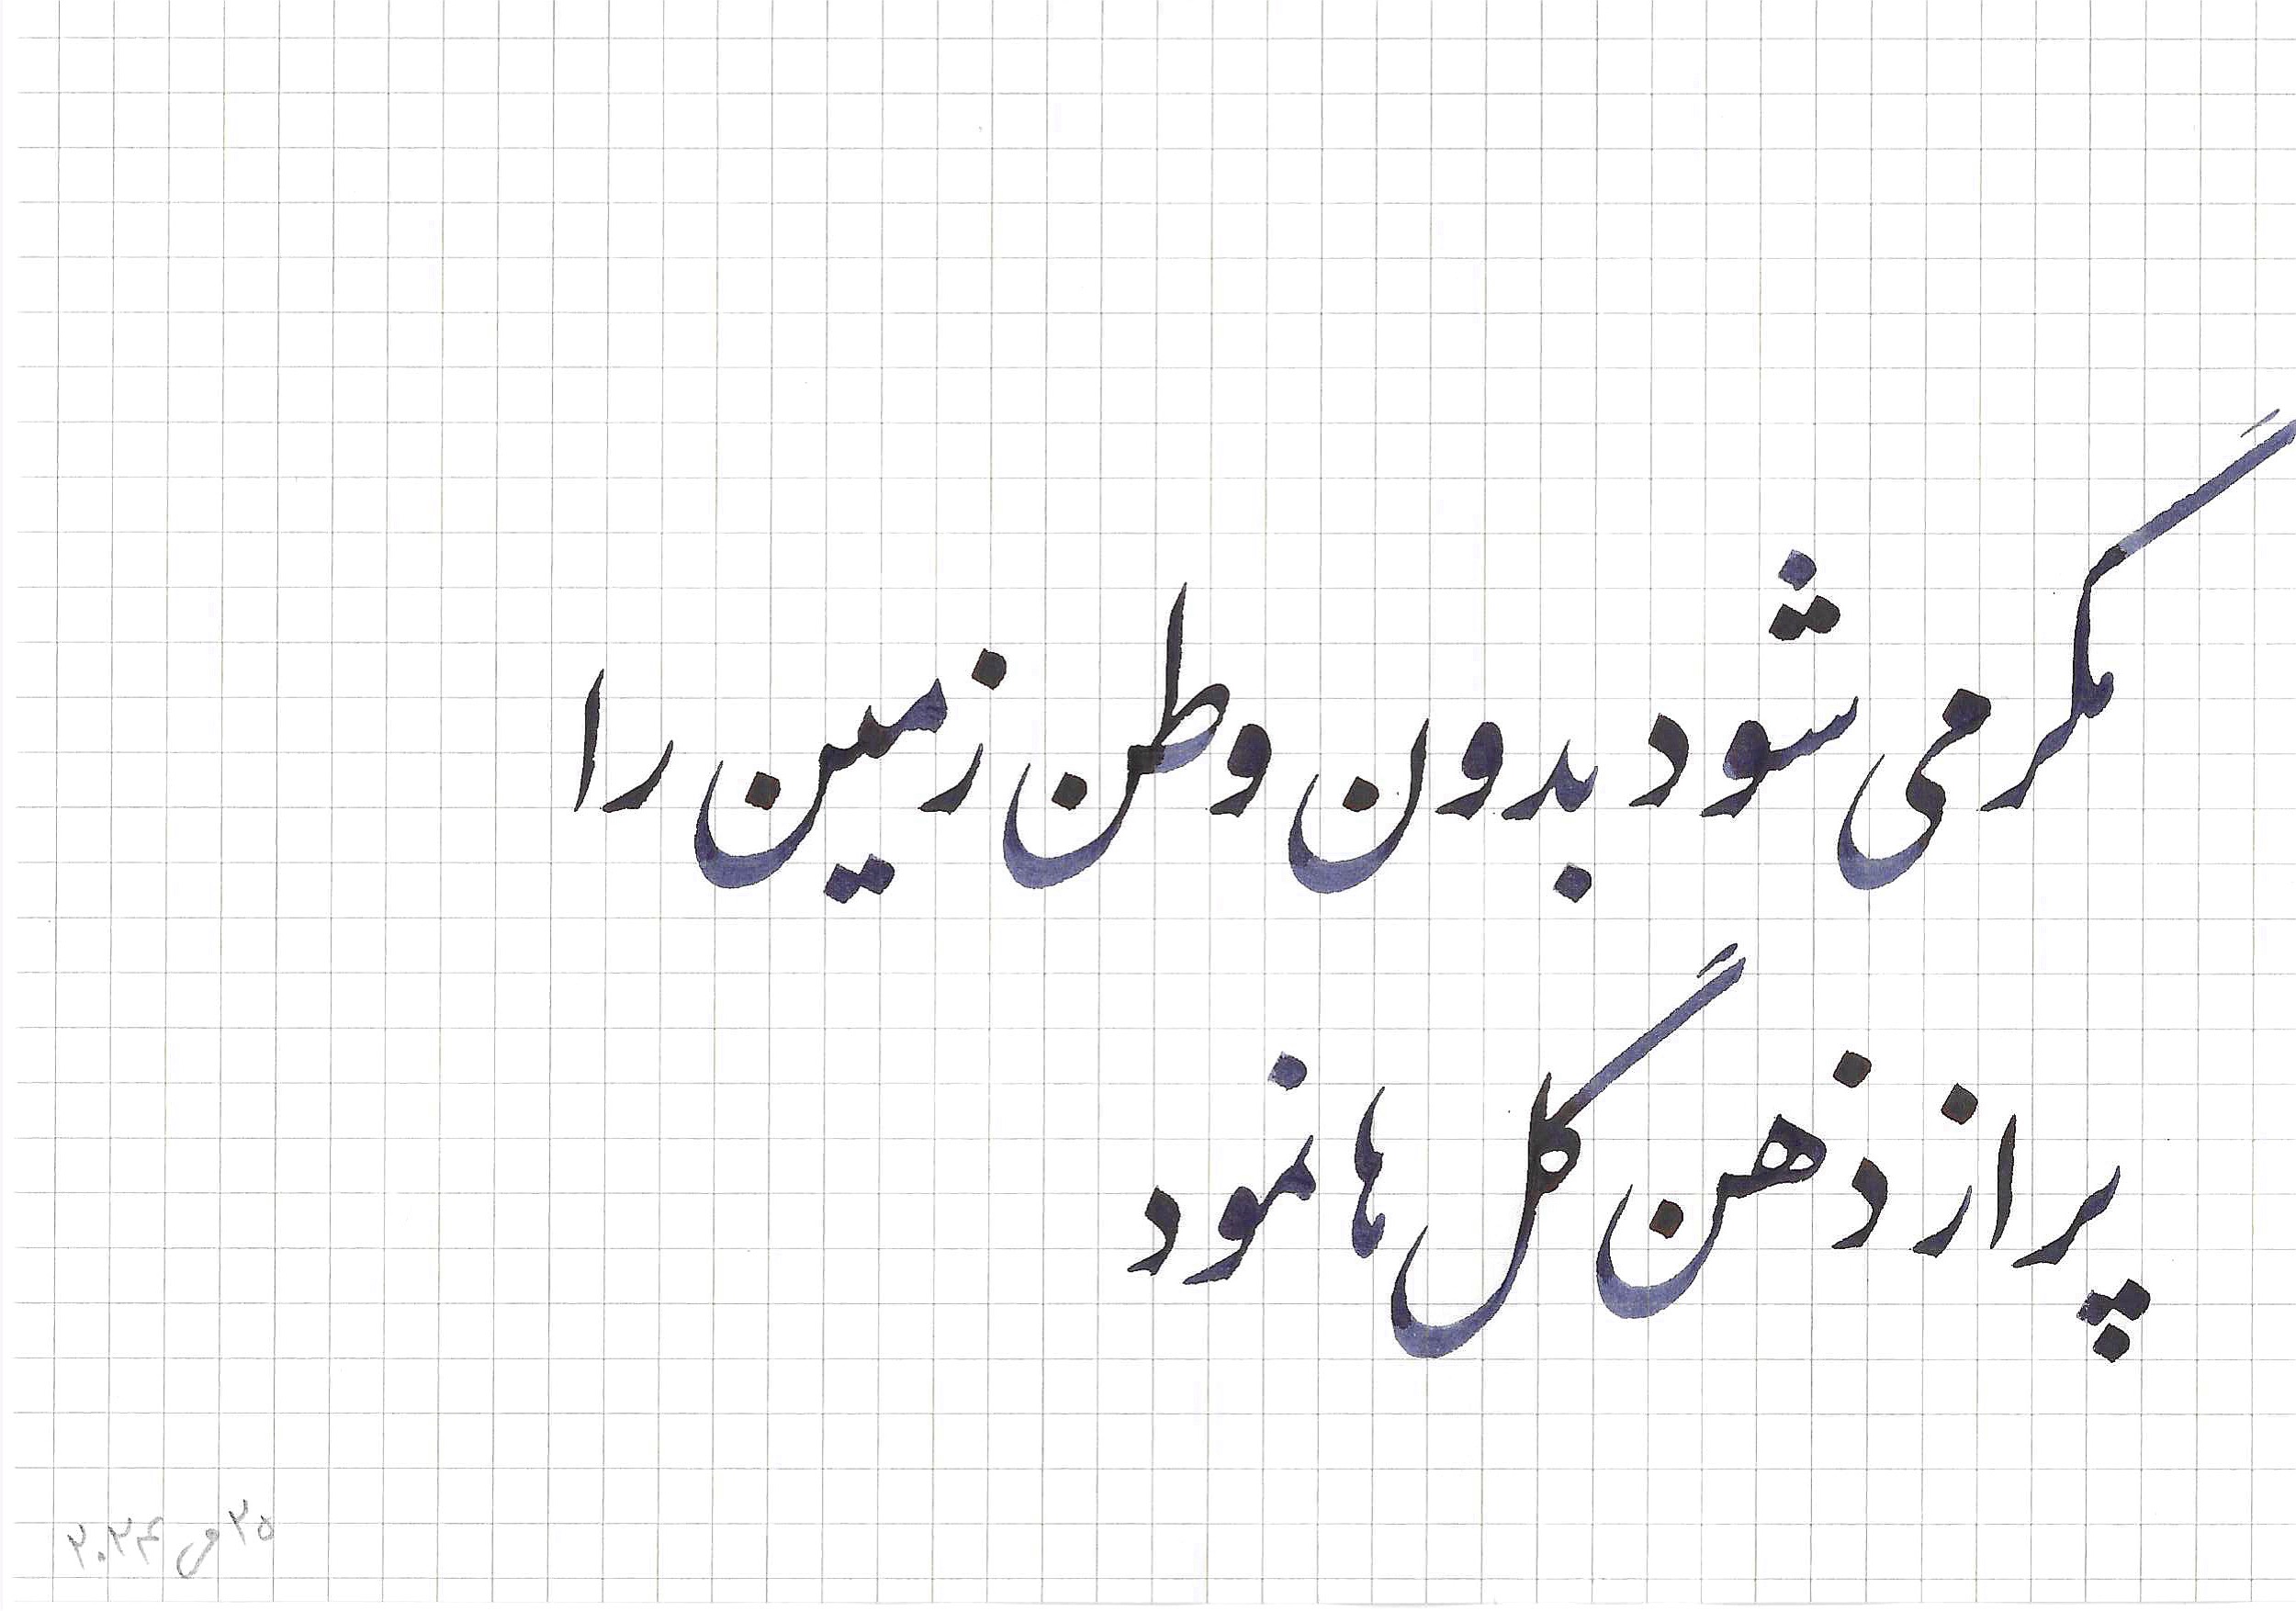 مگر می شود بدون وطن زمین را
پر از ذهن گل ها نمود
۲۵ می ۲۰۲۴